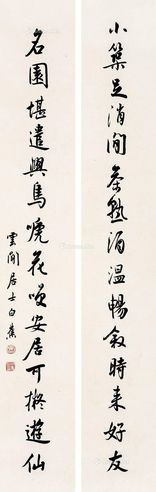 小築足消閒茶熟酒溫暢敘時來好友
名園堪遣興鳥啼花笑安居可擬遊仙
雲間居士白蕉